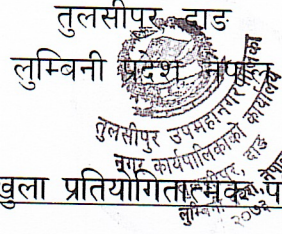 तुलसीपुर, दाङ
लुम्बिनी प्रदेश, नेपाल
तुलसीपुर उपमहानगरपालिका
नगर कार्यपालिकाको कार्यालय
तुलसीपुर, दाङ
लुम्बिनी प्रदेश, नेपाल
२०७३
खुला प्रतियोगितात्मक प